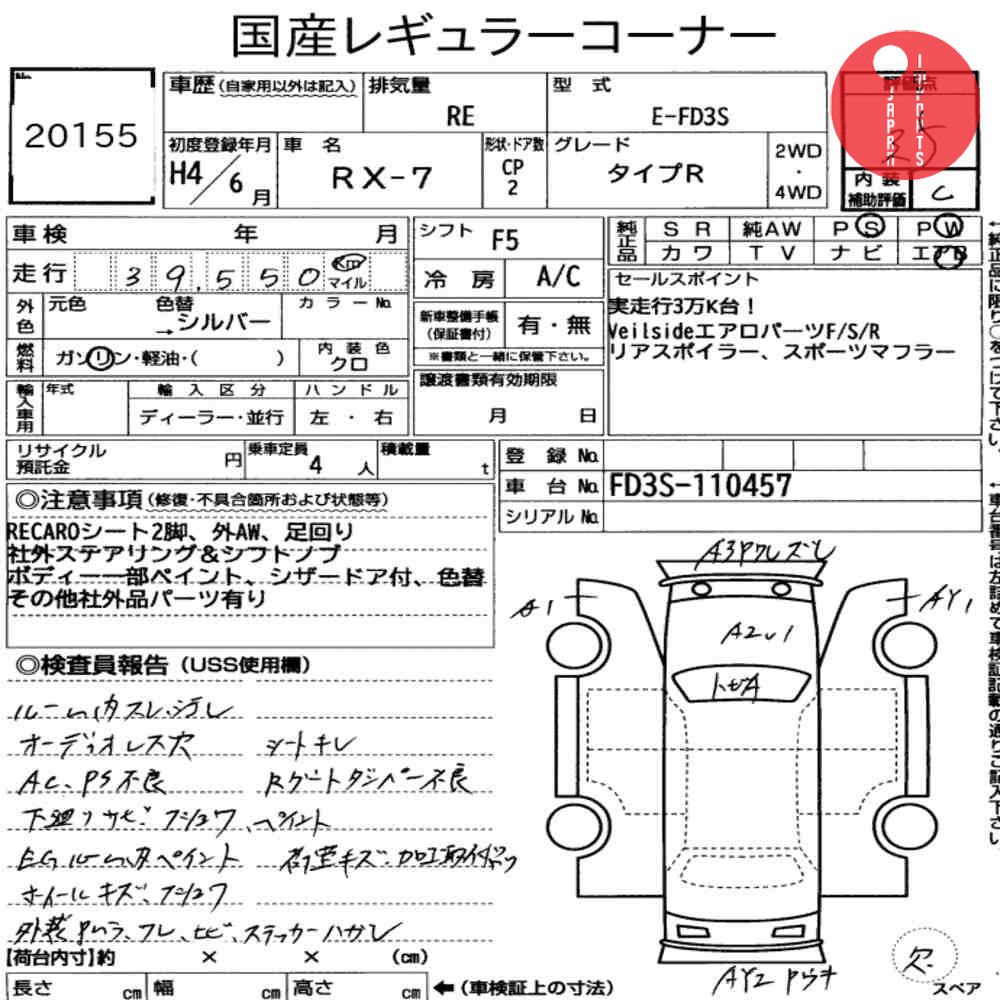 国産レギュラーコーナー
No.
20155
車歴 (自家用以外は記入)
排気量
RE
型 式
E-FD3S
評価点
35
IMPORTS
JAPAN
初度登録年月
H4/6月
車 名
RX-7
形状・ドア数
CP
2
グレード
タイプR
2WD
・
4WD
内装
補助評価
C
車検 年 月
シフト F5
純正品
SR 純AW PS PW
カワ TV ナビ エアB
走行 39,550 Km
マイル
冷房 A/C
セールスポイント
実走行3万K台!
VeilsideエアロパーツF/S/R
リアスポイラー、スポーツマフラー
外色
元色 色替
→シルバー
カラーNo.
新車整備手帳
(保証書付)
有・無
※書類と一緒に保管下さい。
燃料
ガソリン・軽油・( )
内装色
クロ
譲渡書類有効期限
月 日
輸入車用
年式
輸入区分
ディーラー・並行
ハンドル
左・右
リサイクル
預託金 円
乗車定員
4 人
積載量
t
登録No.
車台No. FD3S-110457
シリアルNo.
◎注意事項(修復・不具合箇所および状態等)
RECAROシート2脚、外AW、足回り
社外ステアリング&シフトノブ
ボディー一部ペイント、シザードア付、色替
その他社外品パーツ有り
◎検査員報告(USS使用欄)
ルーム内スレ、汚レ
オーディオレス穴 シートキレ
AC、PS不良 Rゲートダンパー不良
下廻りサビ・フショク、ペイント
EGルーム内ペイント
ホイールキズ、フショク
ステッカーハガシ
【荷台内寸】約 × × (cm)
長さ cm 幅 cm 高さ cm
←(車検証上の寸法)
A1
AY1
A2U1
トビA
AY2
欠
スペア
←純正品に限り○をつけて下さい。
←車台番号は左詰めで車検証記載の通りご記入下さい。